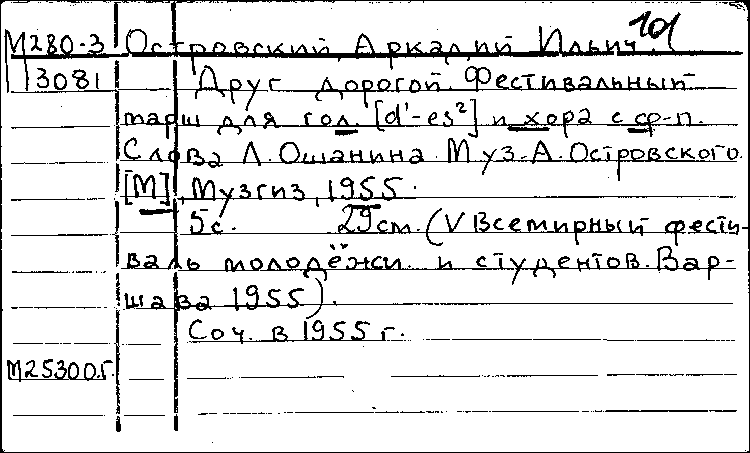 101
М280-3 Островский, Аркадий Ильич.
13081 Друг дорогой. Фестивальный
марш для гол. [d¹-es²] и хора с ф-п.
Слова Л. Ошанина. Муз. А. Островского.
[М], Музгиз, 1955.
5с. 29см. (V Всемирный фести-
валь молодёжи и студентов. Вар-
шава 1955).
Соч. в 1955 г.
М25300г.